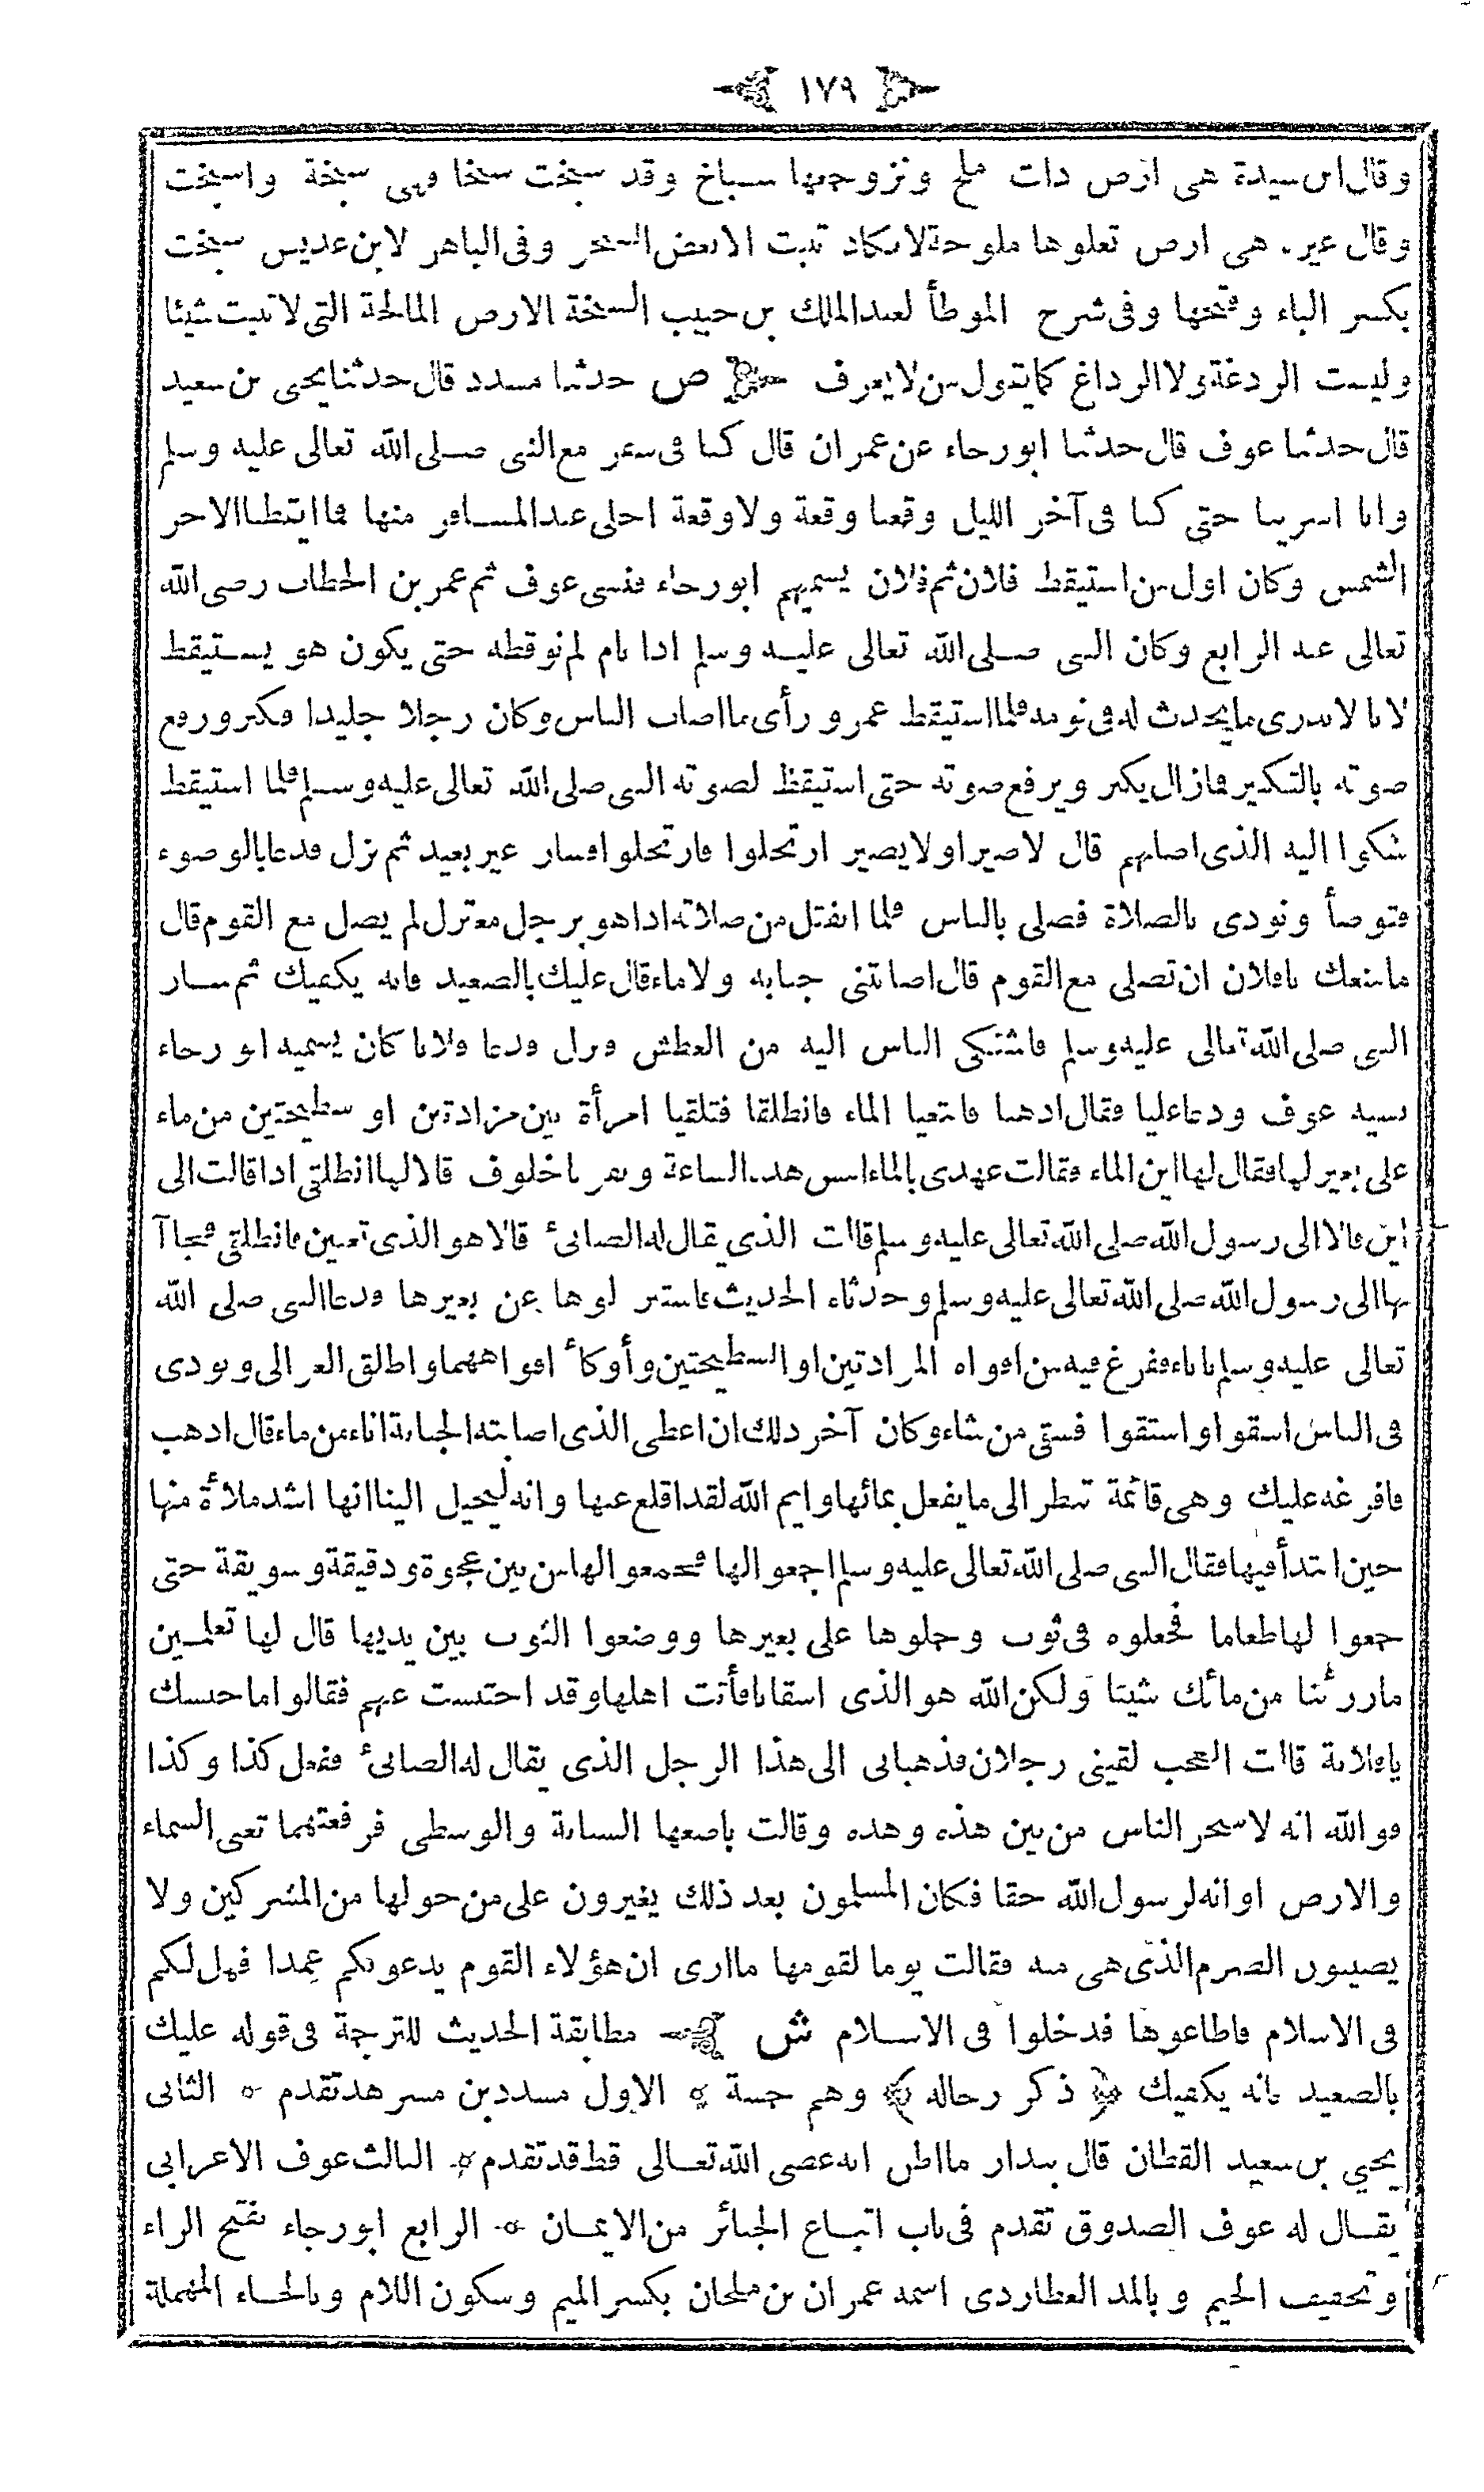 ١٧٩
وقال ابن سيدة هى ارض ذات ملح ونز وجمعها سباخ وقد سبخت سبخا وهى سبخة واسبخت
وقال غيره هى ارض تعلوها ملوحة لاتكاد تنبت الابعض الشجر وفى الباهر لابن عديس سبخت
بكسر الباء وفتحها وفى شرح الموطأ لعبدالملك بن حبيب السبخة الارض المالحة التى لاتنبت شيئا
وليست الردغة ولاالرداغ كمايقول من لايعرف ص حدثنا مسدد قال حدثنا يحيى بن سعيد
قال حدثنا عوف قال حدثنا ابورجاء عن عمران قال كنا فى سفر مع النبى صلى الله تعالى عليه وسلم
وانا اسرينا حتى كنا فى آخر الليل وقعنا وقعة ولاوقعة احلى عندالمسافر منها فماايقظناالاحر
الشمس وكان اول من استيقظ فلان ثم فلان يسميهم ابورجاء فنسى عوف ثم عمر بن الخطاب رضى الله
تعالى عنه الرابع وكان النبى صلى الله تعالى عليه وسلم اذا نام لم نوقظه حتى يكون هو يستيقظ
لانا لاندرى مايحدث له فى نومه فلمااستيقظ عمر و رأى مااصاب الناس وكان رجلا جليدا فكبر ورفع
صوته بالتكبير فمازال يكبر ويرفع صوته حتى استيقظ لصوته النبى صلى الله تعالى عليه وسلم فلما استيقظ
شكوا اليه الذى اصابهم قال لاضير اولايضير ارتحلوا فارتحلوافسار غير بعيد ثم نزل فدعابالوضوء
فتوضأ ونودى بالصلاة فصلى بالناس فلما انفتل من صلاته اذاهو برجل معتزل لم يصل مع القوم قال
مامنعك يافلان ان تصلى مع القوم قال اصابتنى جنابة ولاماء قال عليك بالصعيد فانه يكفيك ثم سار
النبى صلى الله تعالى عليه وسلم فاشتكى الناس اليه من العطش فنزل فدعا فلانا كان يسميه ابو رجاء
نسيه عوف ودعاعليا فقال اذهبا فابتغيا الماء فانطلقا فتلقيا امرأة بين مزادتين او سطيحتين من ماء
على بعير لهافقال لهااين الماء فقالت عهدى بالماءامس هذه الساعة ونفرنا خلوف قالالهاانطلقى اذاقالت الى
اين قالاالى رسول الله صلى الله تعالى عليه وسلم قالت الذى يقال له الصابئ قالا هوالذى تعنين فانطلقى فجاآ
بهاالى رسول الله صلى الله تعالى عليه وسلم وحدثاه الحديث فاستنزلوها عن بعيرها ودعاالنبى صلى الله
تعالى عليه وسلم باناء ففرغ فيه من افواه المزادتين اوالسطيحتين وأوكأ افواههما واطلق العزالى ونودى
فى الناس اسقوا واستقوا فسقى من شاء وكان آخر ذلك ان اعطى الذى اصابته الجنابة اناء من ماء قال اذهب
فافرغه عليك وهى قائمة تنظر الى مايفعل بمائها وايم الله لقد اقلع عنها وانه ليخيل اليناانها اشد ملأة منها
حين ابتدأ فيهافقال النبى صلى الله تعالى عليه وسلم اجمعوا لها فجمعوا لهامن بين عجوة ودقيقة وسويقة حتى
جمعوا لهاطعاما فجعلوه فى ثوب وحملوها على بعيرها ووضعوا الثوب بين يديها قال لها تعلمين
مارزئنا من مائك شيئا ولكن الله هوالذى اسقانا فأتت اهلها وقد احتبست عنهم فقالوا ماحبسك
يافلانة قالت العجب لقينى رجلان فذهبابى الى هذا الرجل الذى يقال له الصابئ ففعل كذا وكذا
فوالله انه لاسحر الناس من بين هذه وهذه وقالت باصبعها السبابة والوسطى فرفعتهما تعنى السماء
والارض اوانه لرسول الله حقا فكان المسلمون بعد ذلك يغيرون على من حولها من المشركين ولا
يصيبون الصرم الذى هى منه فقالت يوما لقومها ماارى ان هؤلاء القوم يدعونكم عمدا فهل لكم
فى الاسلام فاطاعوها فدخلوا فى الاسلام ش مطابقة الحديث للترجمة فى قوله عليك
بالصعيد فانه يكفيك ذكر رجاله وهم خمسة الاول مسدد بن مسرهد تقدم الثانى
يحيى بن سعيد القطان قال بندار مااظن انه عصى الله تعالى قط قد تقدم الثالث عوف الاعرابى
يقال له عوف الصدوق تقدم فى باب اتباع الجنائز من الايمان الرابع ابورجاء بفتح الراء
وتخفيف الجيم وبالمد العطاردى اسمه عمران بن ملحان بكسر الميم وسكون اللام وبالحاء المهملة